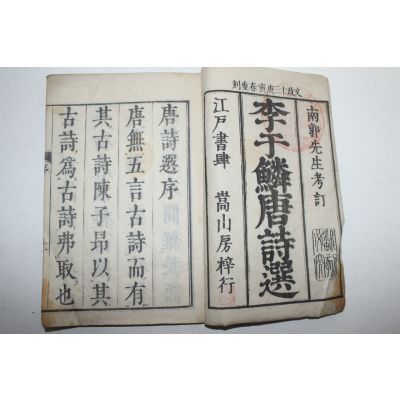 文政十三庚寅春重刻
南郭先生考訂
李于鱗唐詩選
江戸書肆 嵩山房梓行
唐詩選序
唐無五言古詩而有
其古詩陳子昂以其
古詩為古詩弗取也